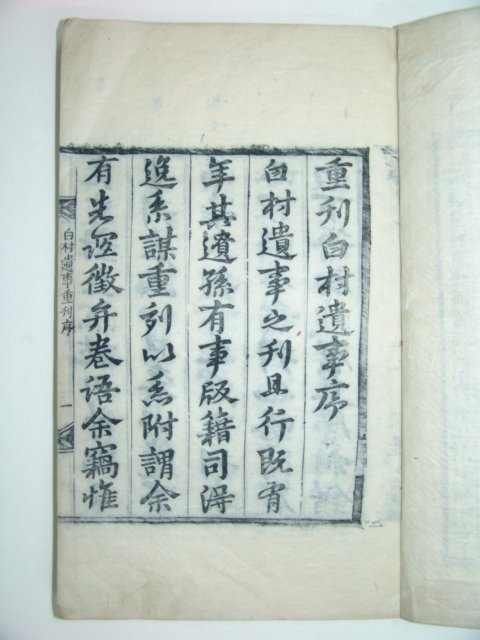 重刋白村遺事序
白村遺事之刋且行旣有
年其遺孫有事版籍司得
逸系謀重刋以系附謂余
有先誼徵弁卷語余竊惟
白村遺事重刋序
一